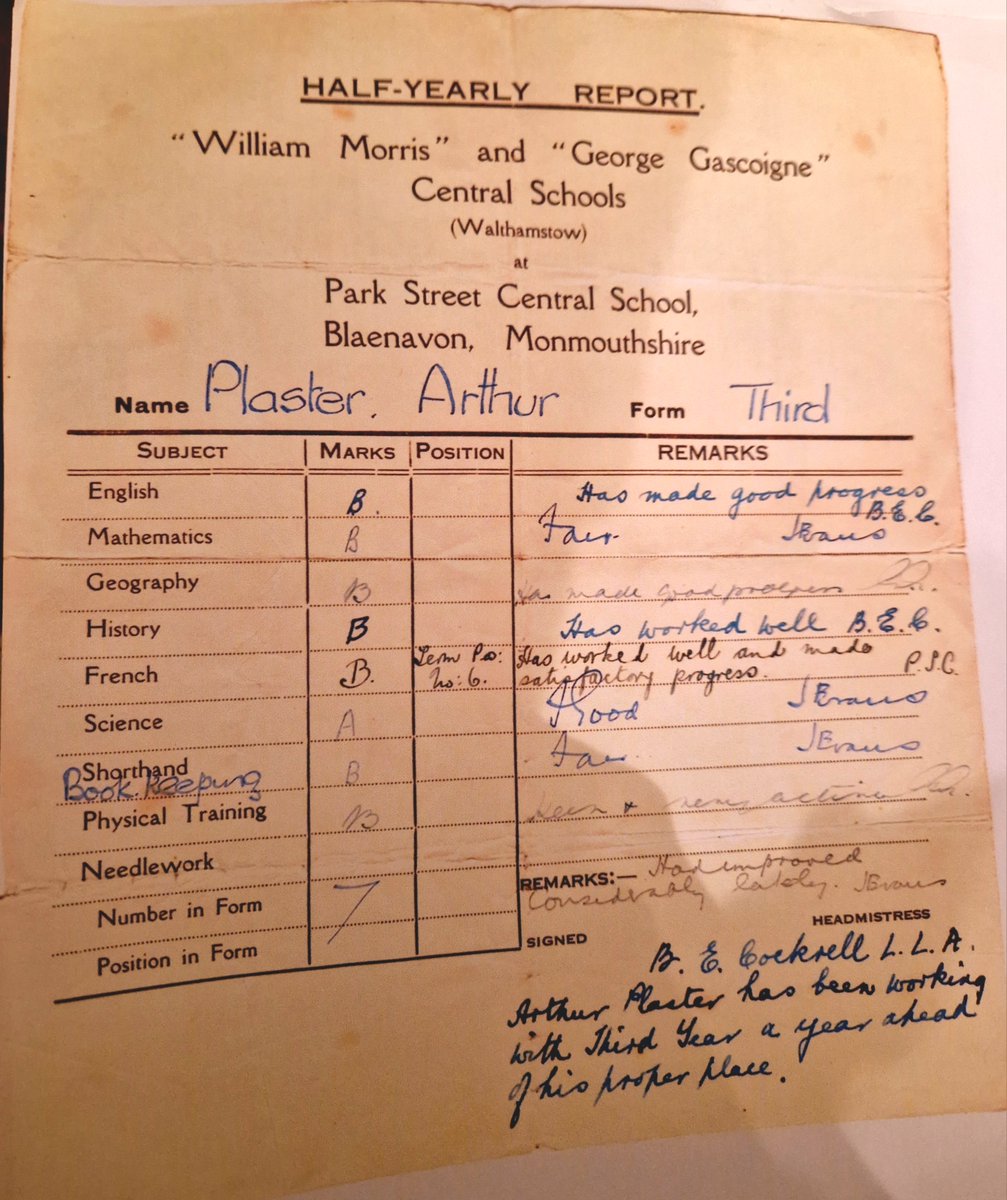 HALF-YEARLY REPORT.
"William Morris" and "George Gascoigne"
Central Schools
(Walthamstow)
at
Park Street Central School,
Blaenavon, Monmouthshire
Name Plaster, Arthur Form Third
SUBJECT MARKS POSITION REMARKS
English B. Has made good progress B.E.C.
Mathematics B Fair. J Evans
Geography B Has made good progress
History B Has worked well B.E.C.
French B. Term Pos: no: 6. Has worked well and made
satisfactory progress. P.J.C.
Science A Good J Evans
Shorthand B Fair J Evans
Book Keeping
Physical Training B Keen & very active
Needlework
REMARKS:— Has improved
considerably lately. J Evans
Number in Form 7
Position in Form
HEADMISTRESS
SIGNED
B. E. Cockrell L.L.A.
Arthur Plaster has been working
with Third Year a year ahead
of his proper place.